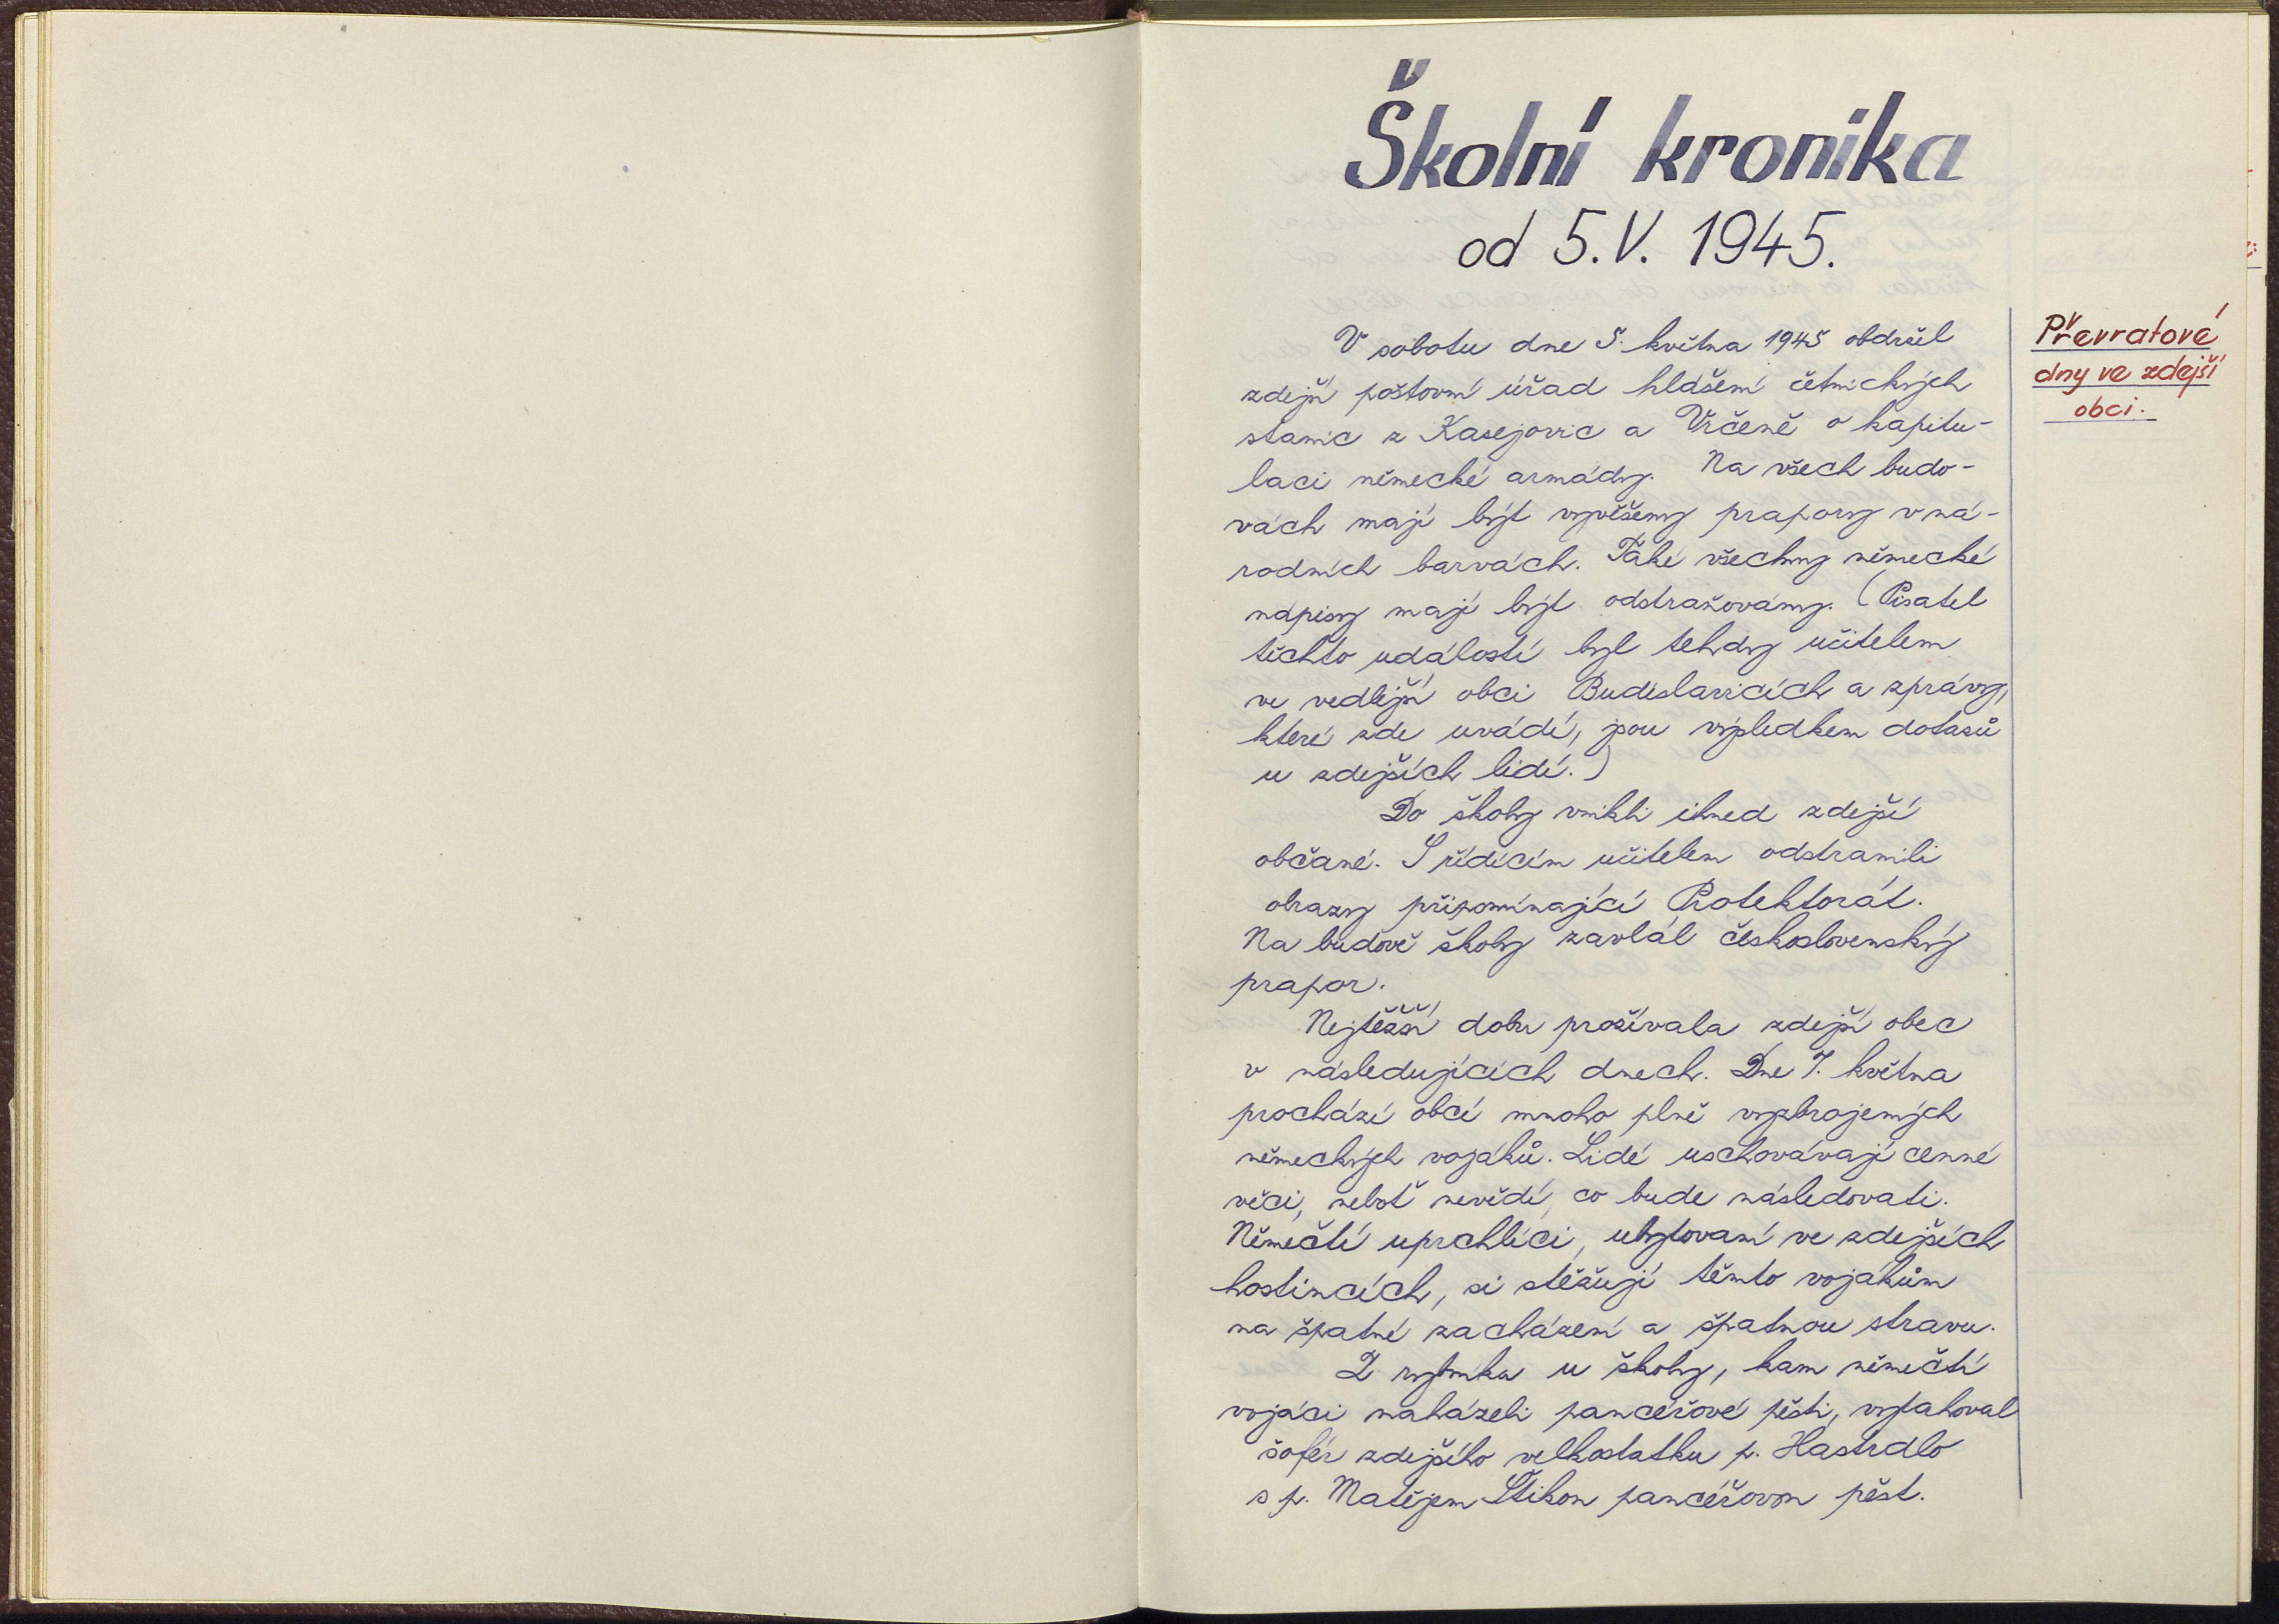 Školní kronika
od 5. V. 1945.
Převratové
dny ve zdejší
obci.
V sobotu dne 5. května 1945 obdržel
zdejší poštovní úřad hlášení četnických
stanic z Kasejovic a Vrčeně o kapitu-
laci německé armády. Na všech budo-
vách mají být vyvěšeny prapory v ná-
rodních barvách. Také všechny německé
nápisy mají být odstraňovány. (Pisatel
těchto událostí byl tehdy učitelem
ve vedlejší obci Budislavicích a zprávy,
které zde uvádí, jsou výsledkem dotazů
u zdejších lidí.)
Do školy vnikli ihned zdejší
občané. S řídícím učitelem odstranili
obrazy připomínající Protektorát.
Na budově školy zavlál československý
prapor.
Nejtěžší dobu prožívala zdejší obec
v následujících dnech. Dne 7. května
prochází obcí mnoho plně vyzbrojených
německých vojáků. Lidé uschovávají cenné
věci, neboť nevědí, co bude následovati.
Němečtí uprchlíci, ubytovaní ve zdejších
hostincích, si stěžují těmto vojákům
na špatné zacházení a špatnou stravu.
Z rybníka u školy, kam němečtí
vojáci naházeli pancéřové pěsti, vytahoval
šofér zdejšího velkostatku p. Hastrdlo
s p. Matějem Štikou pancéřovou pěst.